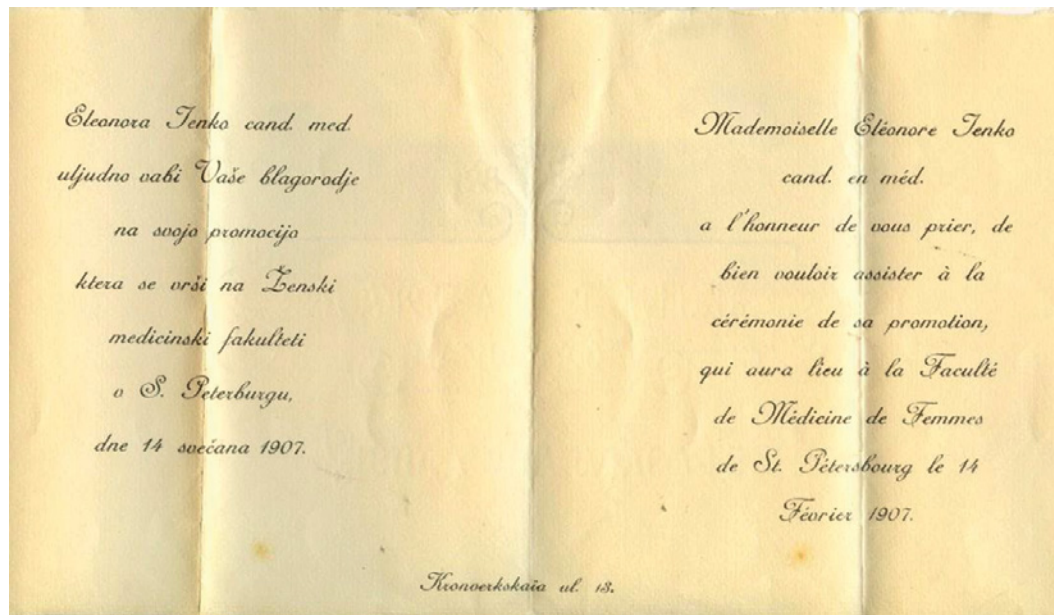 Eleonora Jenko cand. med.
uljudno vabi Vaše blagorodje
na svojo promocijo
ktera se vrši na Ženski
medicinski fakulteti
v S. Peterburgu,
dne 14 svečana 1907.
Mademoiselle Eléonore Jenko
cand. en méd.
a l'honneur de vous prier, de
bien vouloir assister à la
cérémonie de sa promotion,
qui aura lieu à la Faculté
de Médicine de Femmes
de St. Pétersbourg le 14
Février 1907.
Kronverkskaïa ul. 13.